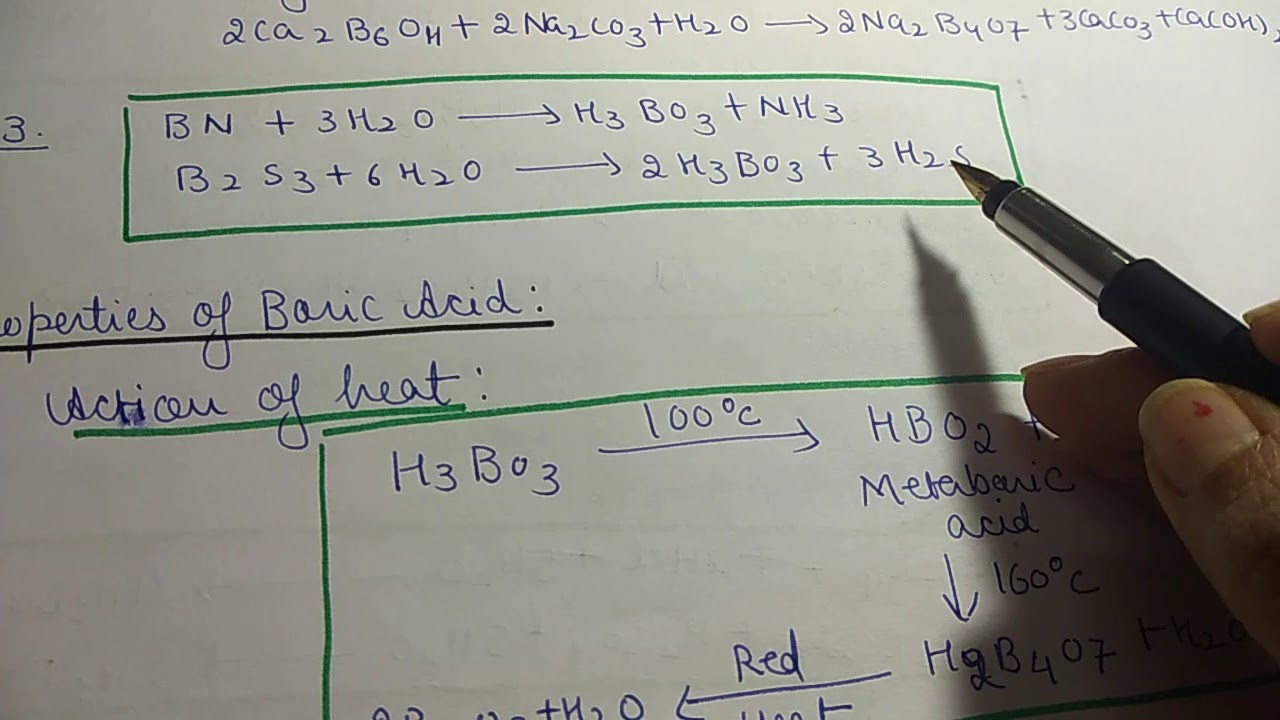 2Ca2B6OH + 2Na2CO3 + H2O → 2Na2B4O7 + 3CaCO3 + Ca(OH)2
3.
BN + 3H2O → H3BO3 + NH3
B2S3 + 6H2O → 2H3BO3 + 3H2S
operties of Boric Acid:
Action of heat:
H3BO3 100°C → HBO2 +
Metaboric
acid
↓ 160°C
H2B4O7 + H2O
Red
+H2O ←
Heat